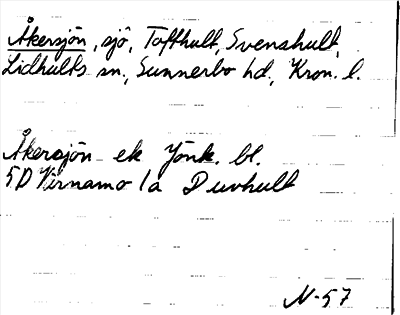 Åkersjön, sjö, Tofthult, Svenshult,
Lidhults sn., Sunnerbo hd., Kron. l.
Åkersjön ek Jönk. bl.
5D Värnamo 1a Duvhult
N-57